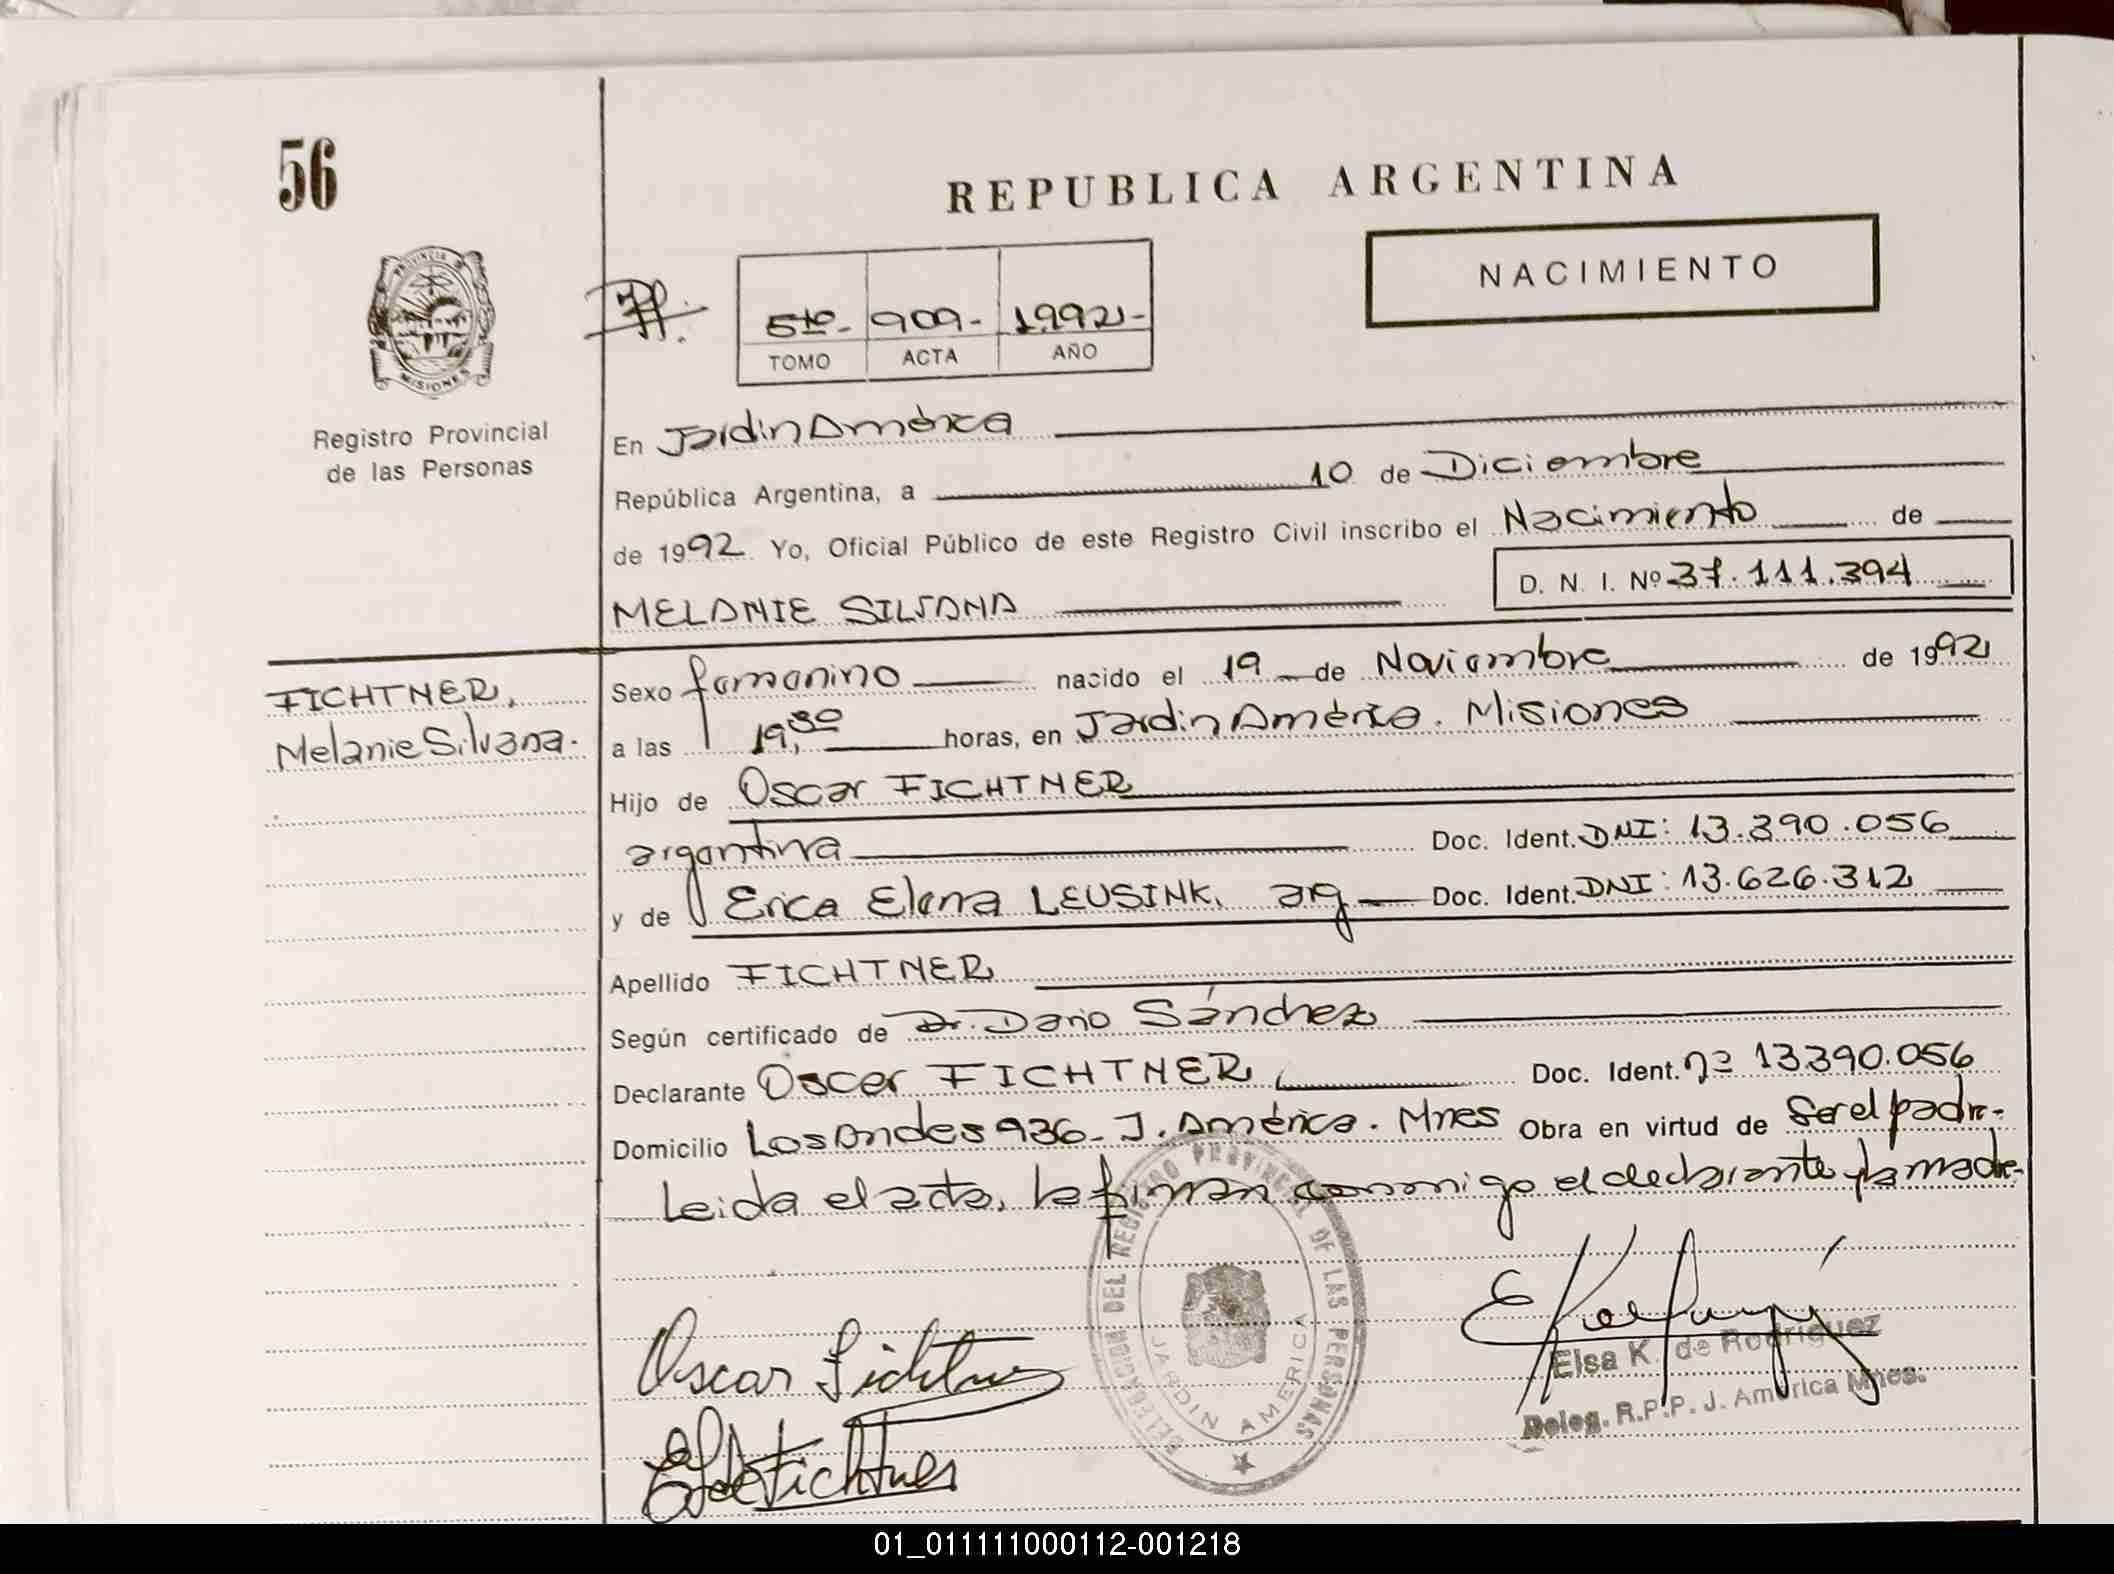 56
REPUBLICA ARGENTINA
NACIMIENTO
PROVINCIA DE
MISIONES
5to- 909- 1992-
TOMO ACTA AÑO
Registro Provincial
de las Personas
En Jardin América
República Argentina, a 10 de Diciembre
de 1992 Yo, Oficial Público de este Registro Civil inscribo el Nacimiento de
D. N. I. Nº 37.111.394
MELANIE SILVANA
FICHTNER,
Melanie Silvana.
Sexo femenino nacido el 19 de Noviembre de 1992
a las 19,30 horas, en Jardin América. Misiones
Hijo de Oscar FICHTNER
argentina Doc. Ident. DNI: 13.390.056
y de Erica Elena LEUSINK, arg Doc. Ident. DNI: 13.626.312
Apellido FICHTNER
Según certificado de Dr. Dario Sánchez
Declarante Oscar FICHTNER, Doc. Ident. nº 13390.056
Domicilio Los Andes 936- J. América. Mnes Obra en virtud de Ser el padre-
Leida el acta, la firman conmigo el declarante y la madre-
DELEGACION DEL REGISTRO PROVINCIAL DE LAS PERSONAS
JARDIN AMERICA
Oscar Fichtner
Elsa K. de Rodriguez
Deleg. R.P.P. J. América Mnes.
de Fichtner
01_011111000112-001218